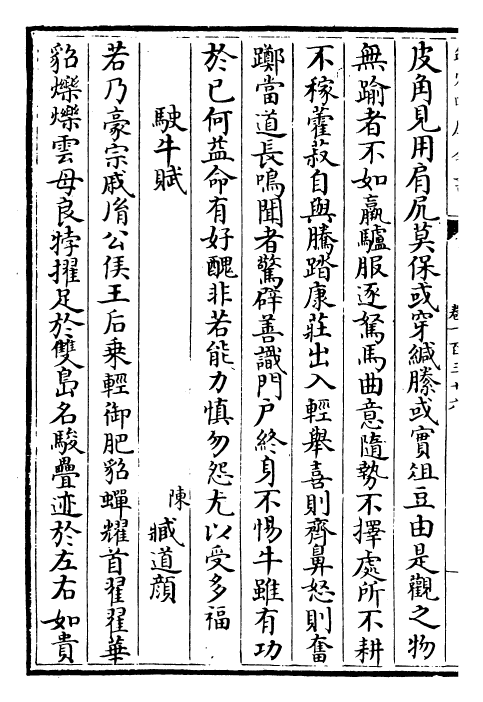 皮角見用肩尻莫保或穿緘縢或實俎豆由是觀之物
無踰者不如羸驢服逐駑馬曲意隨勢不擇處所不耕
不稼藿菽自與騰踏康莊出入輕舉喜則齊鼻怒則奮
躑當道長鳴聞者驚辟善識門户終身不惕牛雖有功
於已何益命有好醜非若能力慎勿怨尤以受多福
駛牛賦
陳 臧道顔
若乃豪宗戚胄公侯王后乗輕御肥貂蟬耀首翟翟華
貂爍爍雲母良牸擢足於雙島名駿疊迹於左右如貴
卷一百三十六